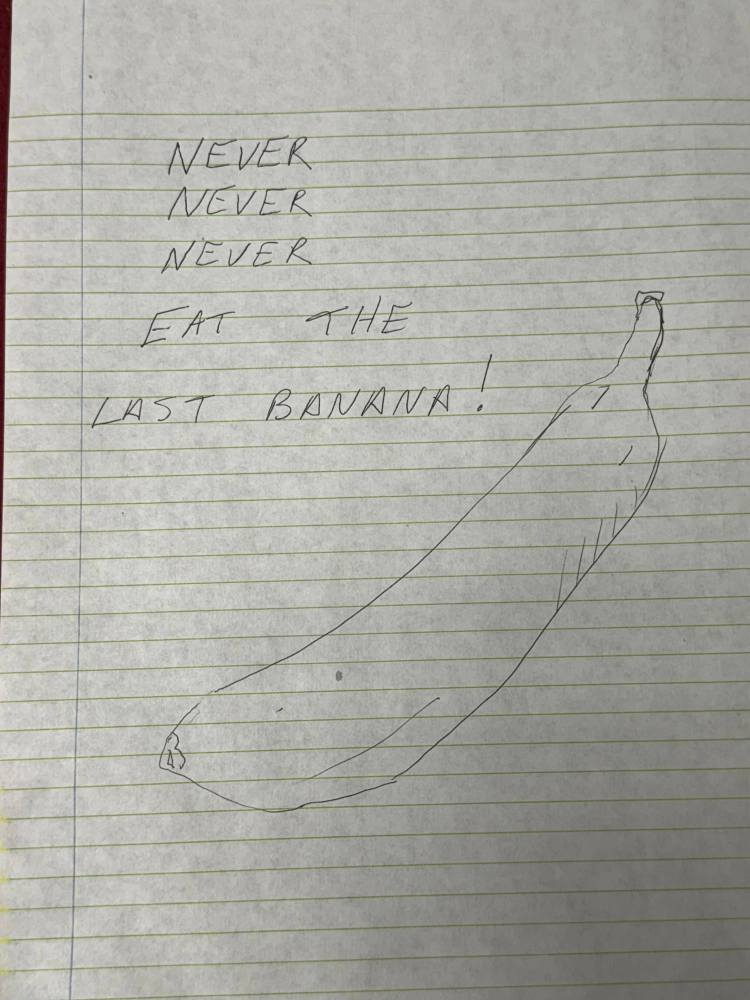 NEVER
NEVER
NEVER
EAT THE
LAST BANANA!